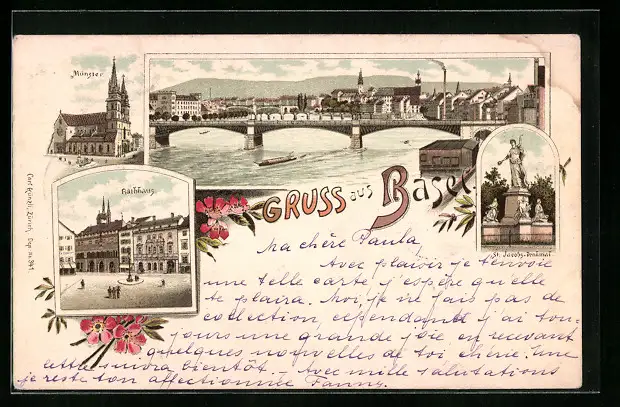 Münster
Rathhaus.
GRUSS aus Basel
St. Jacobs-Denkmal
Carl Künzli, Zürich, Dep. No. 941.
Ma chère Paula,
Avec plaisir je t'envoie
une telle carte, j'espère qu'elle
te plaira. Moi, je ne fais pas de
collection, cependant j'ai tou-
jours une grande joie en recevant
quelques nouvelles de toi chérie. une
lettre suivra bientôt. - Avec mille salutations
je reste ton affectionnée Fanny.